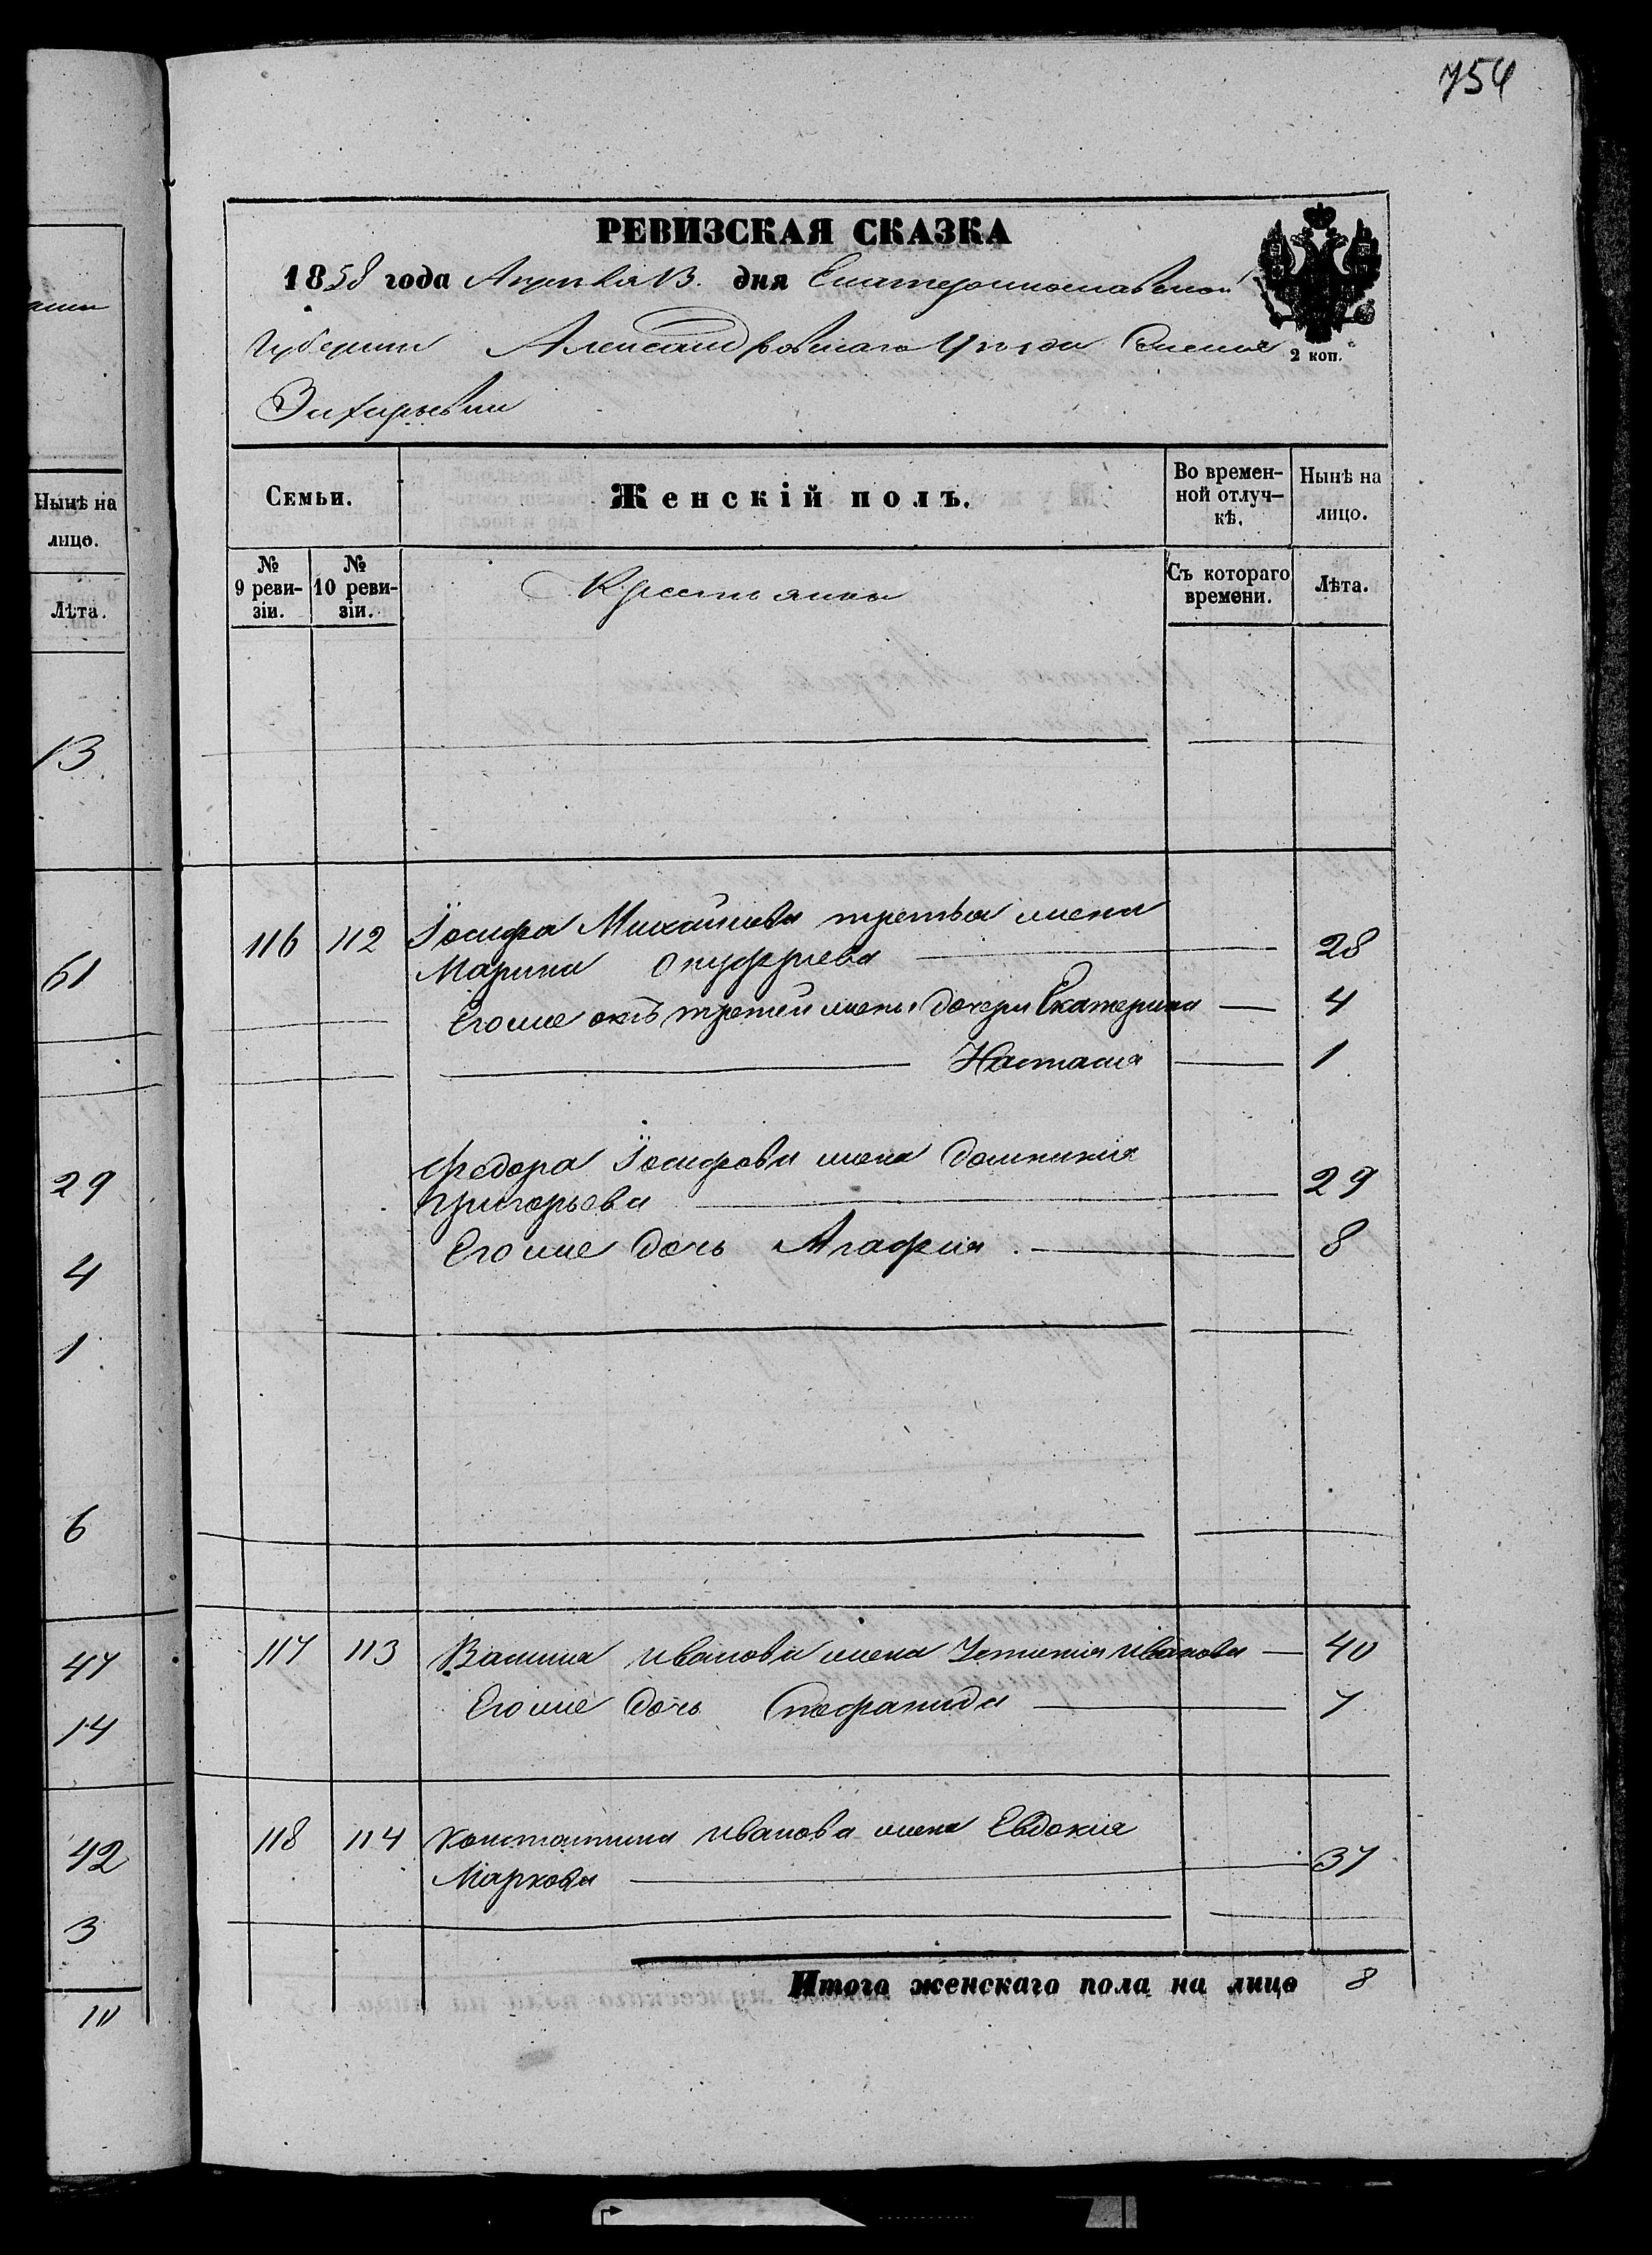 754
РЕВИЗСКАЯ СКАЗКА
1858 года Апреля 13. дня Екатеринославской
Губернии Александровскаго Уезда Селения
Захарьевки
2 коп.
Семьи.
Женскій полъ.
Во времен-
ной отлуч-
кѣ.
Нынѣ на
лицо.
№
9 реви-
зіи.
№
10 реви-
зіи.
Крестьяне
Съ котораго
времени.
Лѣта.
116 112 Іосифа Михайлова третья жена
Марина Онуфріева 28
Его же отъ третей жены дочери Екатерина 4
Настасія 1
Федора Іосифова жена Домникія
Григорьева 29
Его же дочь Агафия 8
117 113 Васила Иванова жена Устинія Иванова 40
Его же дочь Стефанида 7
118 114 Константина Иванова жена Евдокия
Маркова 37
Итого женскаго пола на лицо 8
Нынѣ на
лицо.
Лѣта.
13
61
29
4
1
6
47
14
42
3